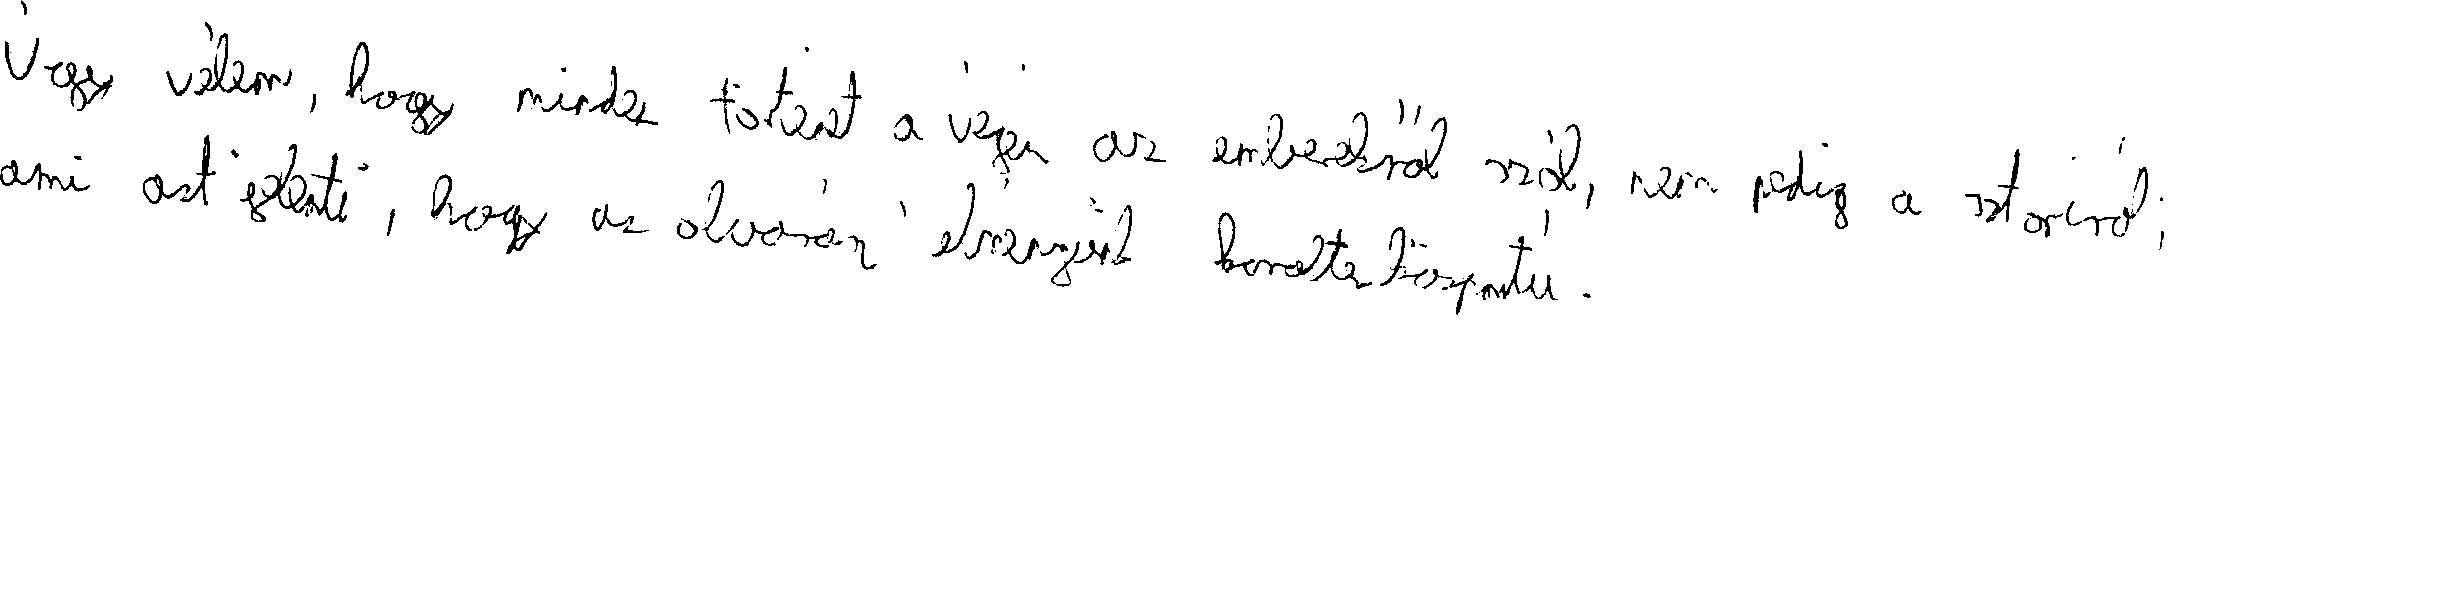 Úgy vélem, hogy mindez történt a végén az emberekről szól, nem pedig a sztoriról;
ami azt jelenti, hogy az olvasóan élményeik karakterközpontú.